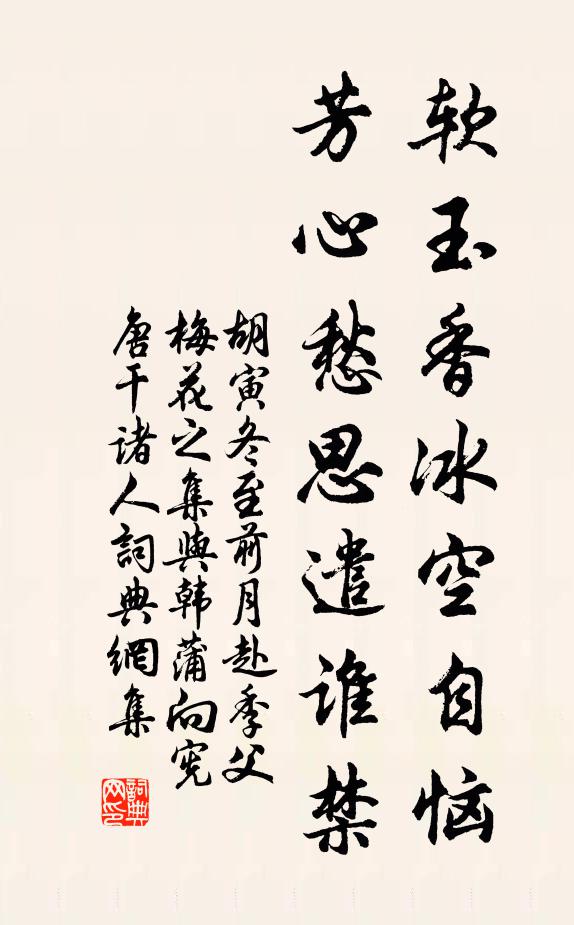 软玉香冰空自恼
芳心愁思遣谁禁
胡寅冬至前月赴季父
梅花之集與韩蒲向宪
唐干诸人詞典網集
詞典
网印